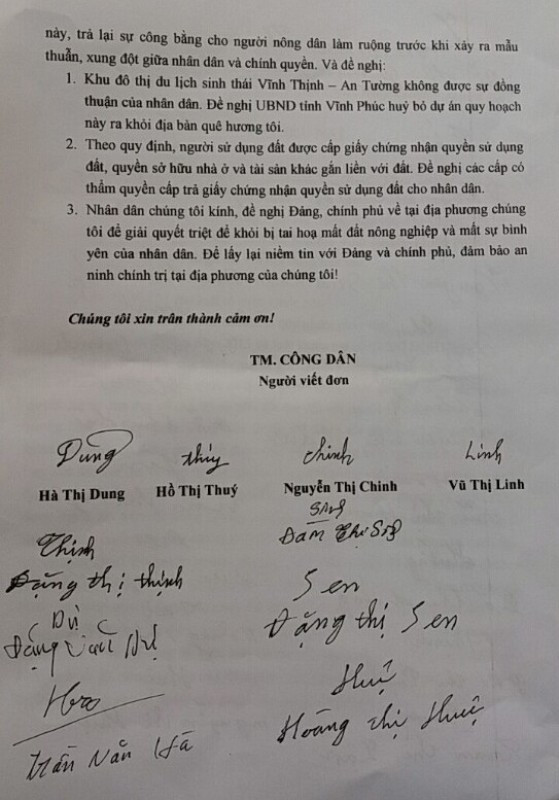 này, trả lại sự công bằng cho người nông dân làm ruộng trước khi xảy ra mẫu
thuẫn, xung đột giữa nhân dân và chính quyền. Và đề nghị:
1. Khu đô thị du lịch sinh thái Vĩnh Thịnh – An Tường không được sự đồng
thuận của nhân dân. Đề nghị UBND tỉnh Vĩnh Phúc huỷ bỏ dự án quy hoạch
này ra khỏi địa bàn quê hương tôi.
2. Theo quy định, người sử dụng đất được cấp giấy chứng nhận quyền sử dụng
đất, quyền sở hữu nhà ở và tài sản khác gắn liền với đất. Đề nghị các cấp có
thẩm quyền cấp trả giấy chứng nhận quyền sử dụng đất cho nhân dân.
3. Nhân dân chúng tôi kính, đề nghị Đảng, chính phủ về tại địa phương chúng
tôi để giải quyết triệt để khỏi bị tai hoạ mất đất nông nghiệp và mất sự bình
yên của nhân dân. Để lấy lại niềm tin với Đảng và chính phủ, đảm bảo an
ninh chính trị tại địa phương của chúng tôi!
Chúng tôi xin trân thành cảm ơn!
TM. CÔNG DÂN
Người viết đơn
Dung thúy chinh Linh
Hà Thị Dung Hồ Thị Thuý Nguyễn Thị Chinh Vũ Thị Linh
Đàm Thị
Thịnh
Đặng thị thịnh
Sen
Đặng thị Sen
Dự
Đặng
Huệ
Hoàng thị Huệ
Trần Văn Hà